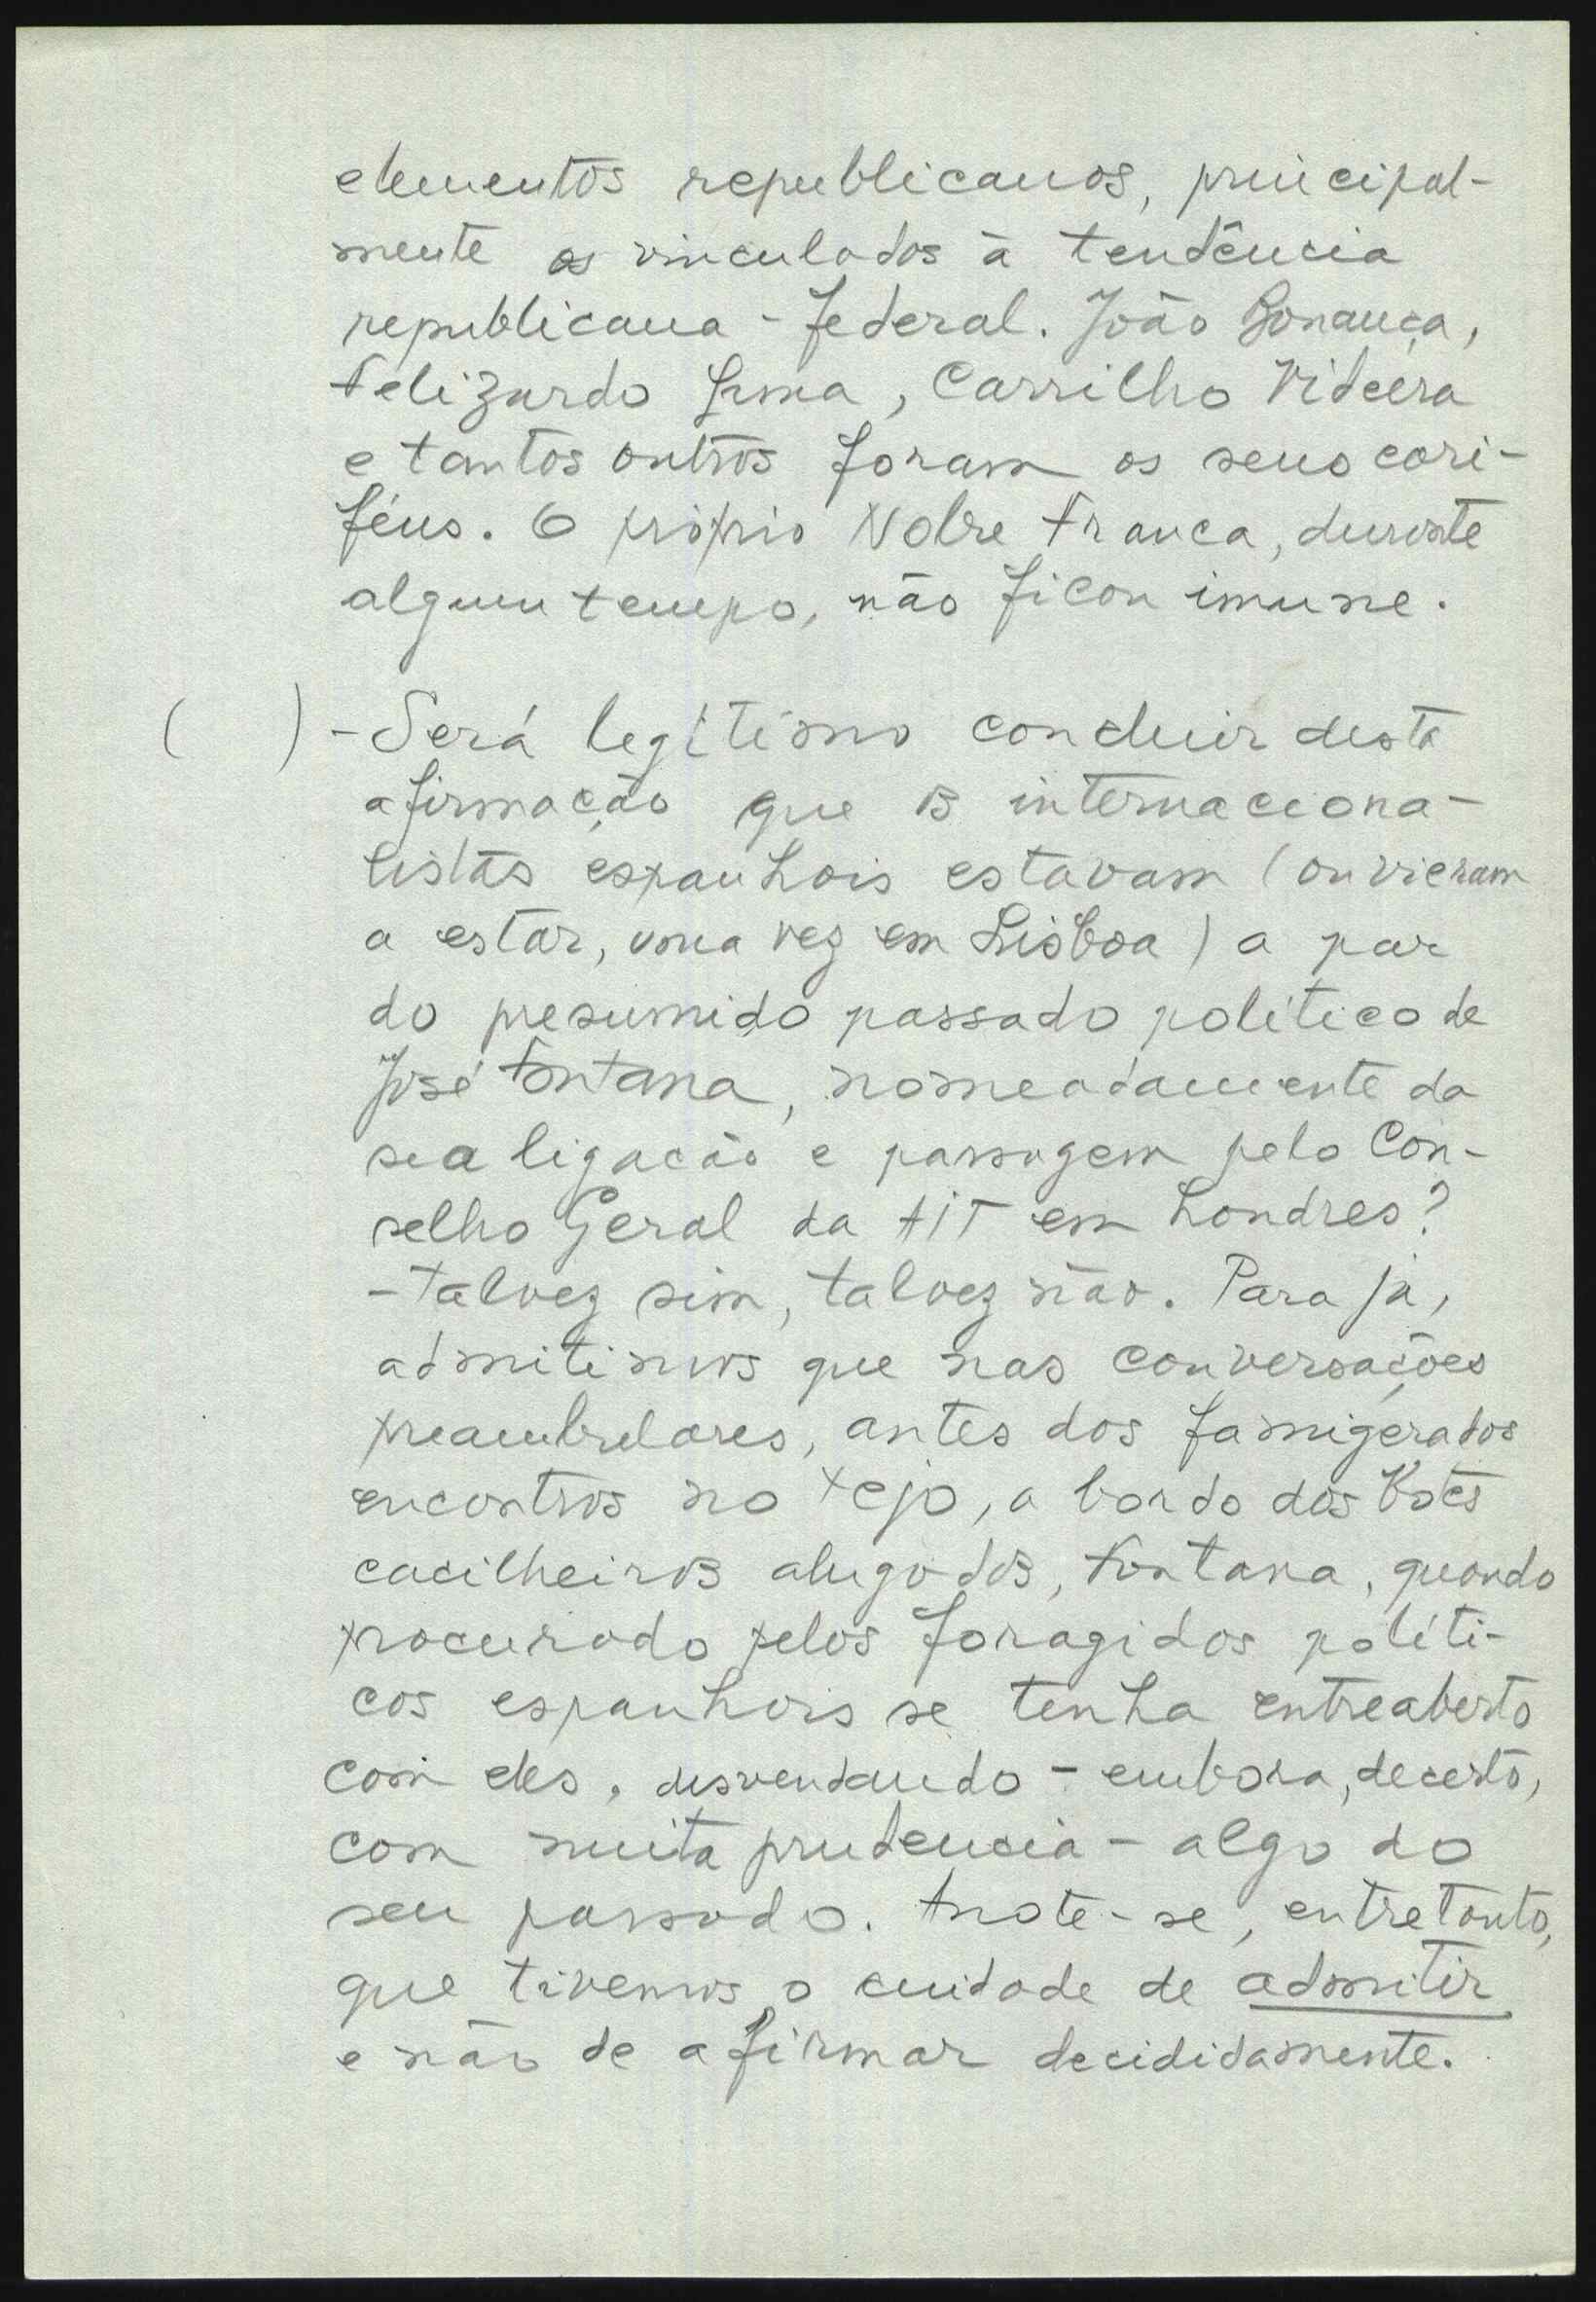 elementos republicanos, principal-
mente os vinculados à tendência
republicana - federal. João Bonança,
Felizardo Lima, Carrilho Videira
e tantos outros foram os seus cori-
féus. O próprio Nobre França, durante
algum tempo, não ficou imune.
( ) - Será legítimo concluir desta
afirmação que os internaciona-
listas espanhois estavam (ou vieram
a estar, uma vez em Lisboa) a par
do presumido passado político de
José Fontana, nomeadamente da
sua ligação e passagem pelo Con-
selho Geral da AIT em Londres?
- Talvez sim, talvez não. Para já,
admitimos que nas conversações
preambulares, antes dos famigerados
encontros no Tejo, a bordo dos botes
cacilheiros alugados, Fontana, quando
procurado pelos foragidos políti-
cos espanhois se tenha entreaberto
com eles, desvendando - embora, decerto,
com muita prudencia - algo do
seu passado. Anote-se, entretanto,
que tivemos o cuidade de admitir
e não de afirmar decididamente.